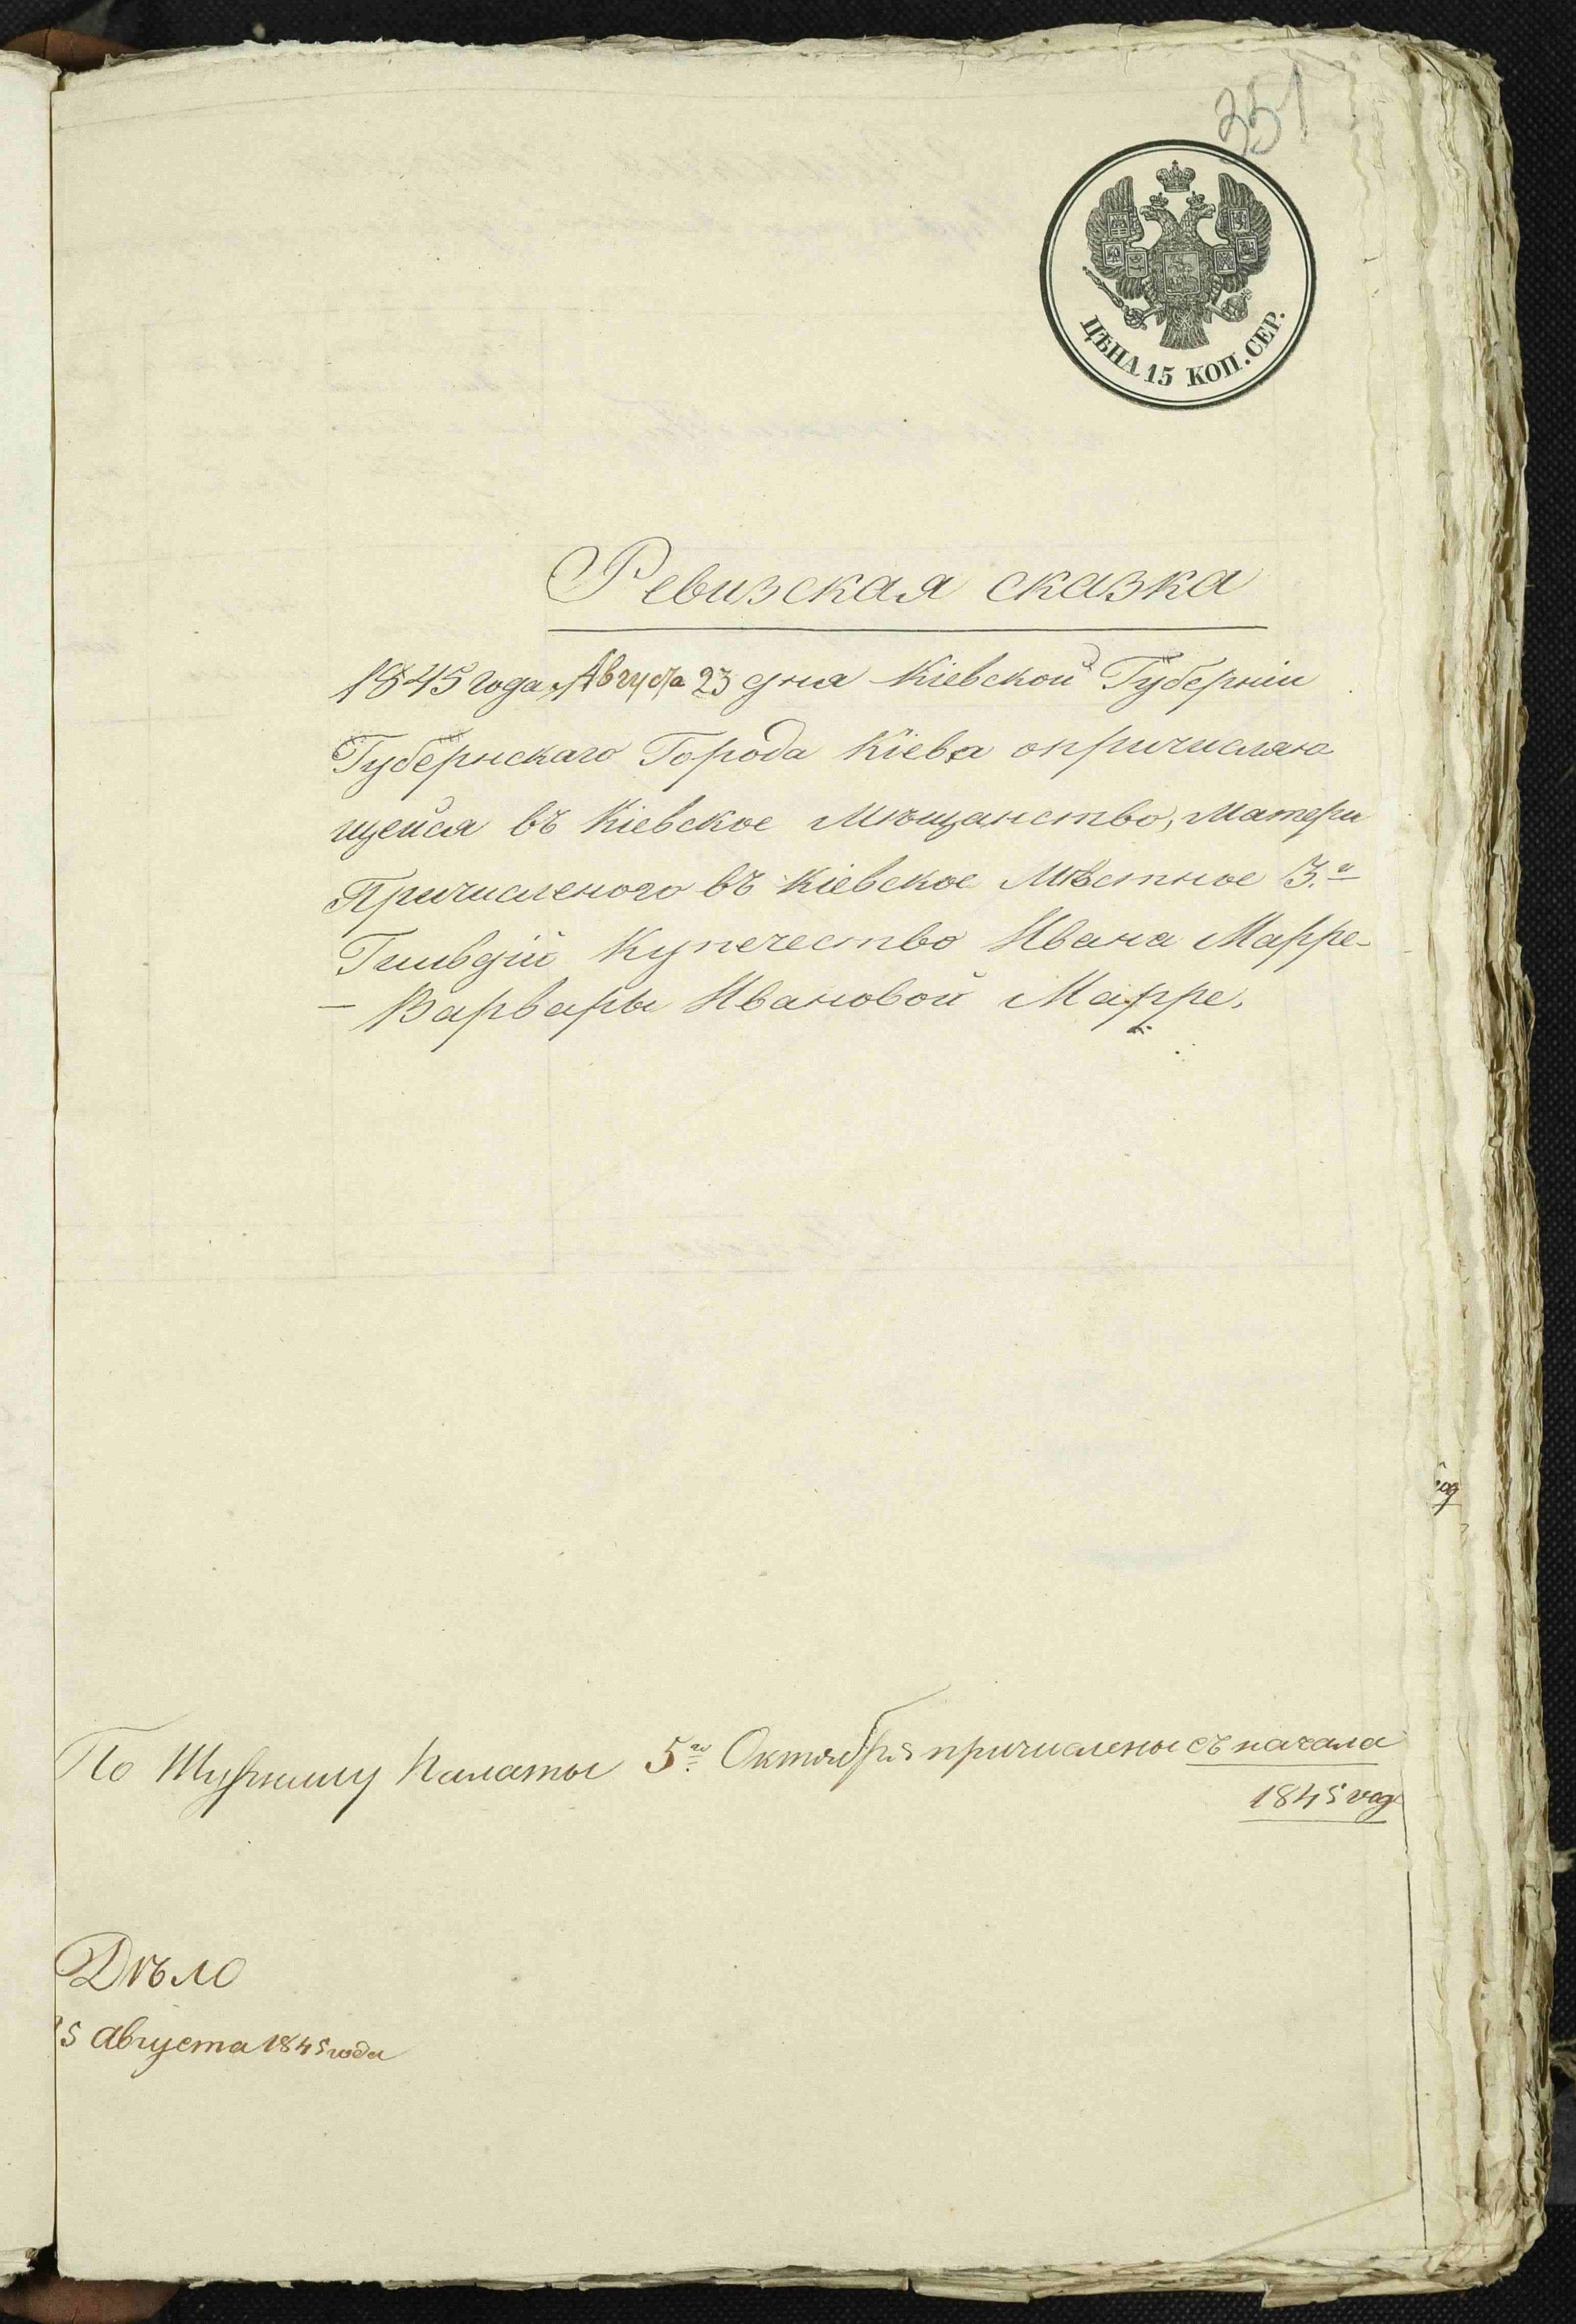 351
ЦѢНА 15 КОП. СЕР.
Ревизская сказка
1845 года Августа 23 дня Кіевской Губерніи
Губернскаго Города Кіева опричисляю
щейся въ Кіевское Мѣщанство, Матери
Причисленого въ Кіевское Мѣстное 3.й
Гильдіи Купечество Ивана Марре-
- Варвары Ивановой Марре.
По Журналу Палаты 5го Октября причислены съ начала
1845 год
Дѣло
5 Августа 1845 года